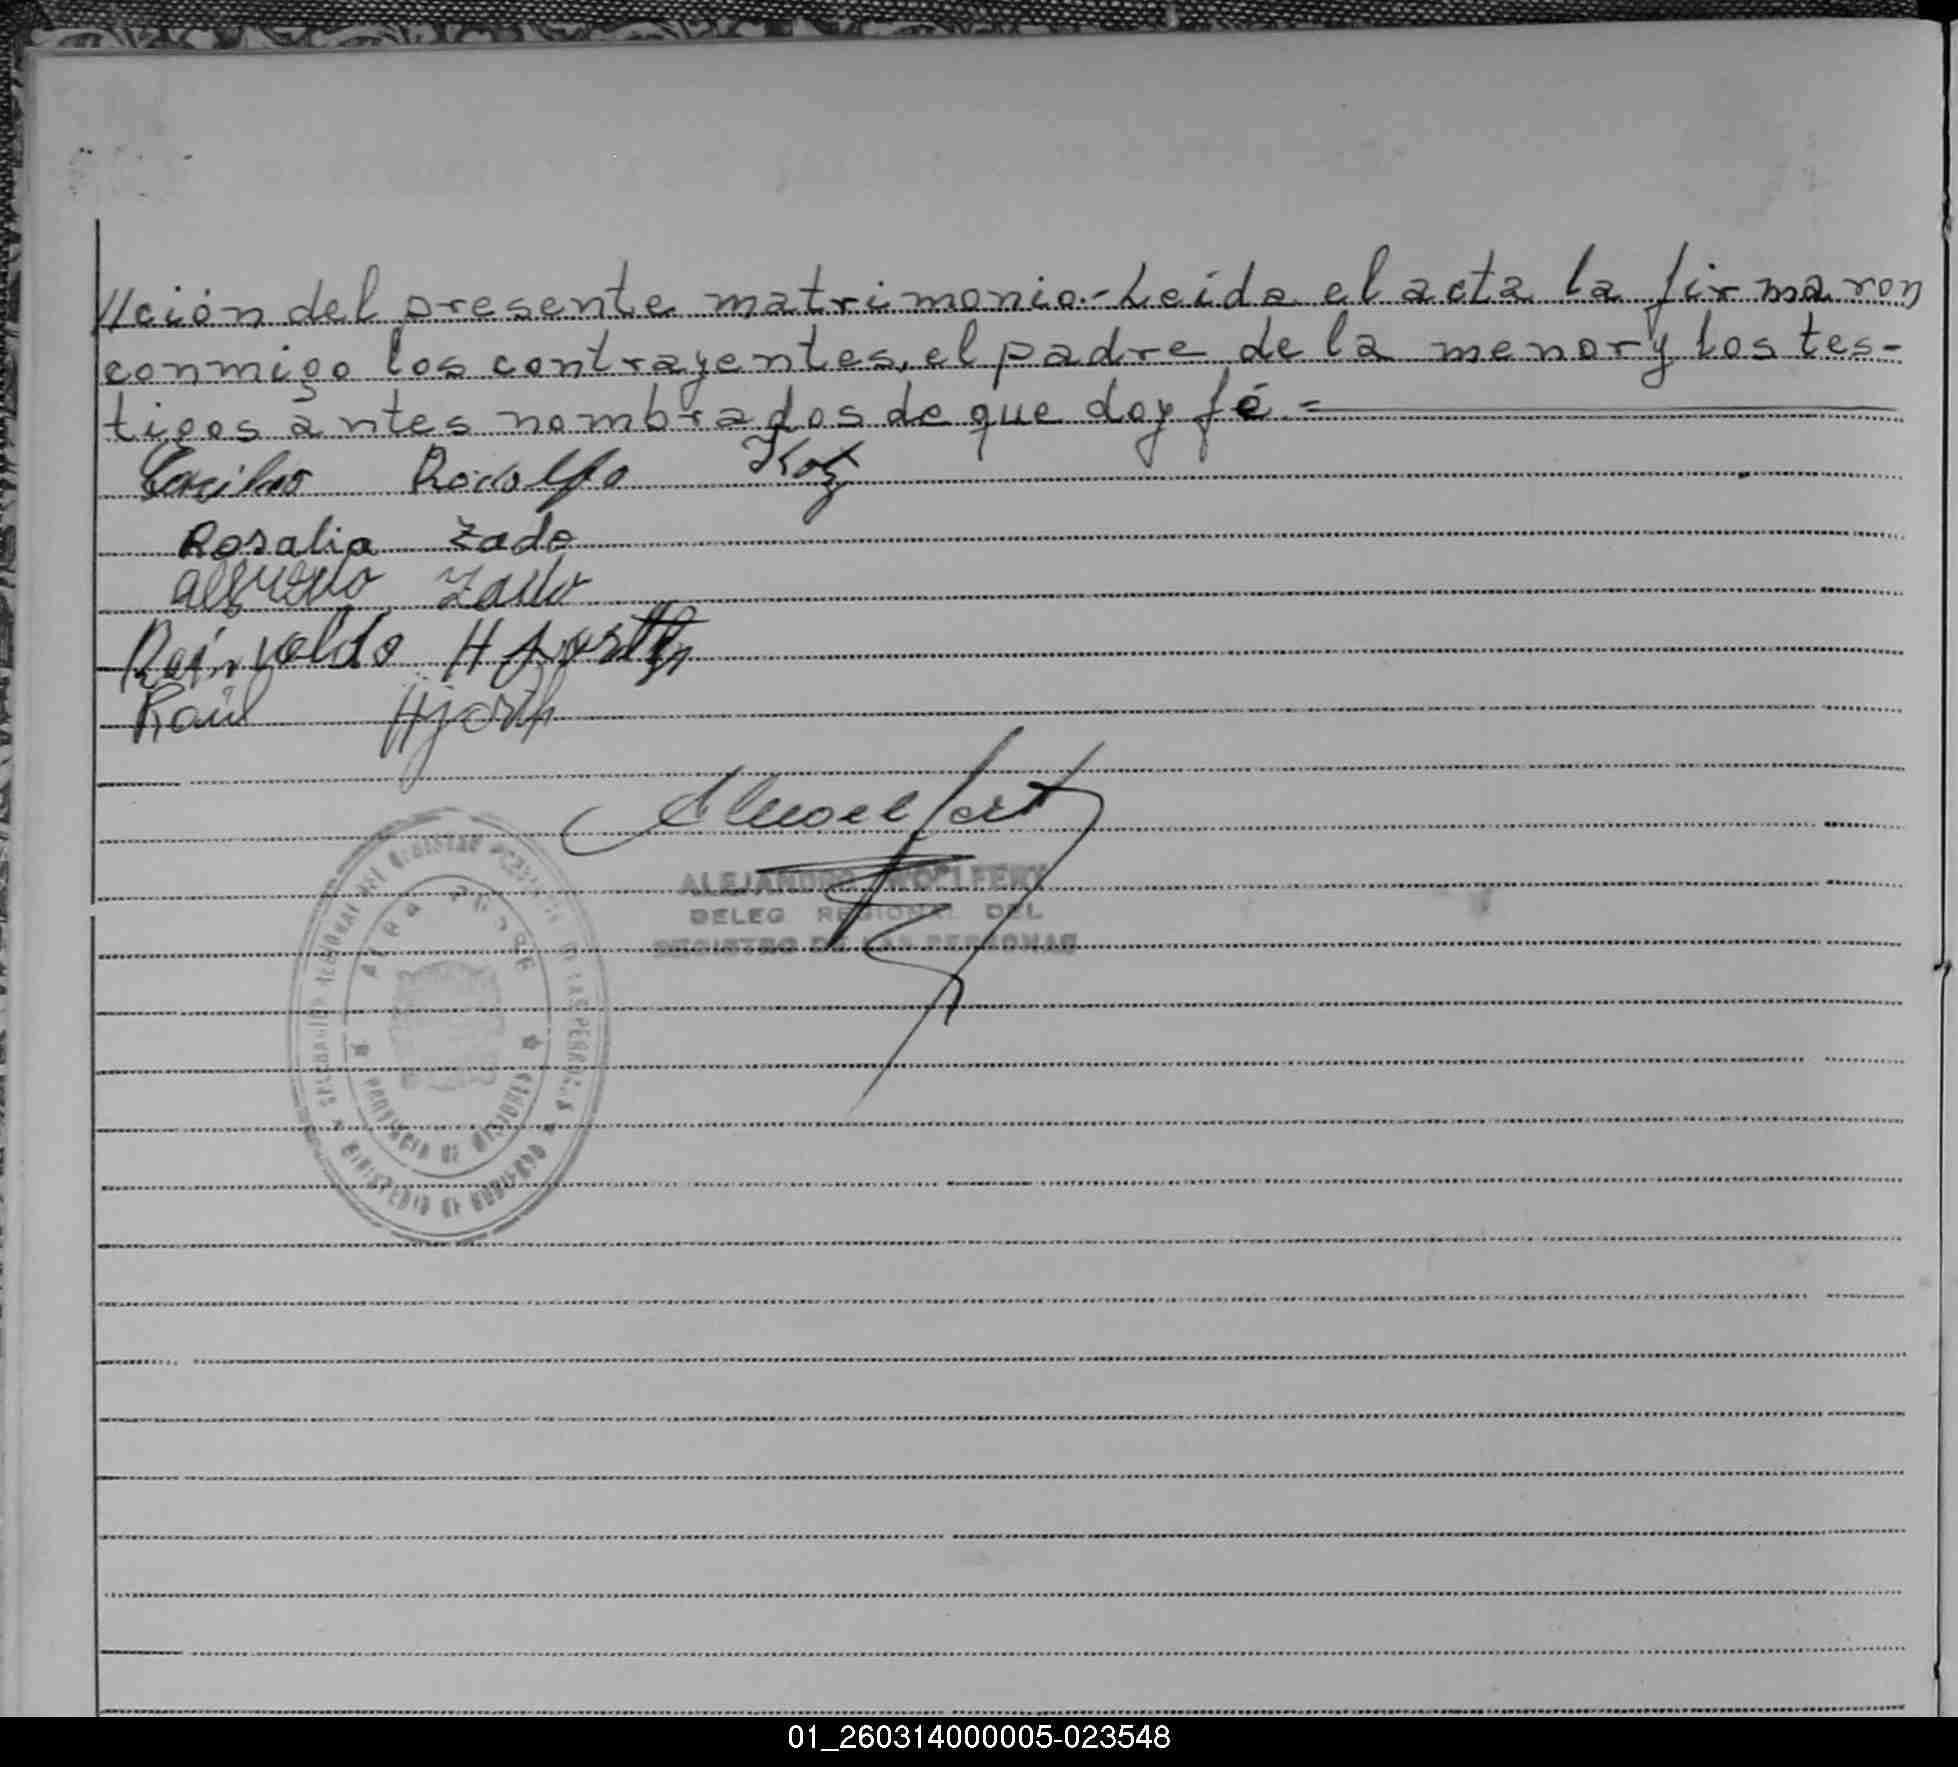 //ción del presente matrimonio.- Leída el acta la firmaron
conmigo los contrayentes, el padre de la menor y los tes-
tigos antes nombrados de que doy fé.=
Rodolfo
Rosalia Zado
Alfredo Zado
Reinaldo Hjorth
Raúl Hjorth
ALEJANDRO
DELEG REGIONAL DEL
REGISTRO DE LAS PERSONAS
PROVINCIA DE MISIONES
MINISTERIO DE GOBIERNO
01_260314000005-023548